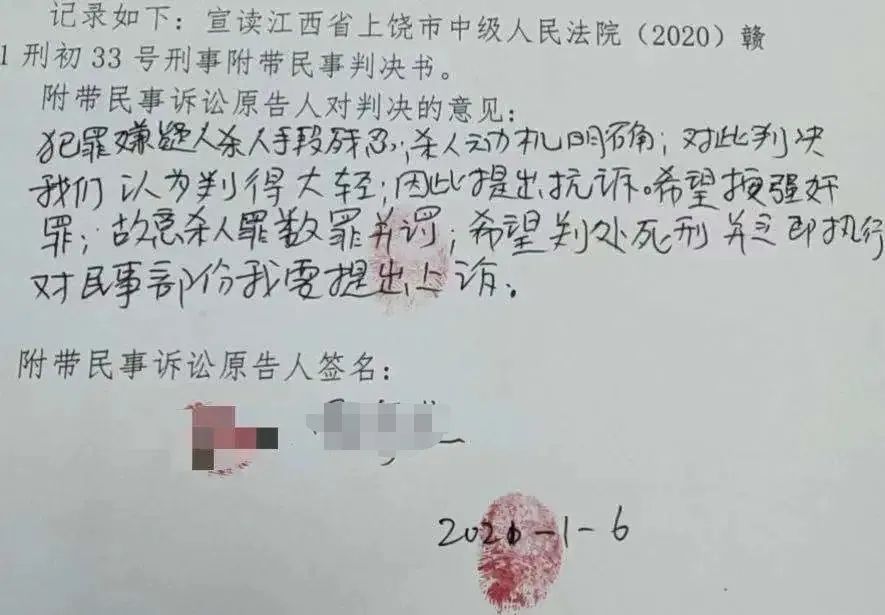 记录如下：宣读江西省上饶市中级人民法院（2020）赣
1 刑初 33 号刑事附带民事判决书。
附带民事诉讼原告人对判决的意见：
犯罪嫌疑人杀人手段残忍；杀人动机明确；对此判决
我们认为判得太轻；因此提出抗诉。希望按强奸
罪；故意杀人罪数罪并罚；希望判处死刑并立即执行
对民事部份我要提出上诉。
附带民事诉讼原告人签名：
2021-1-6